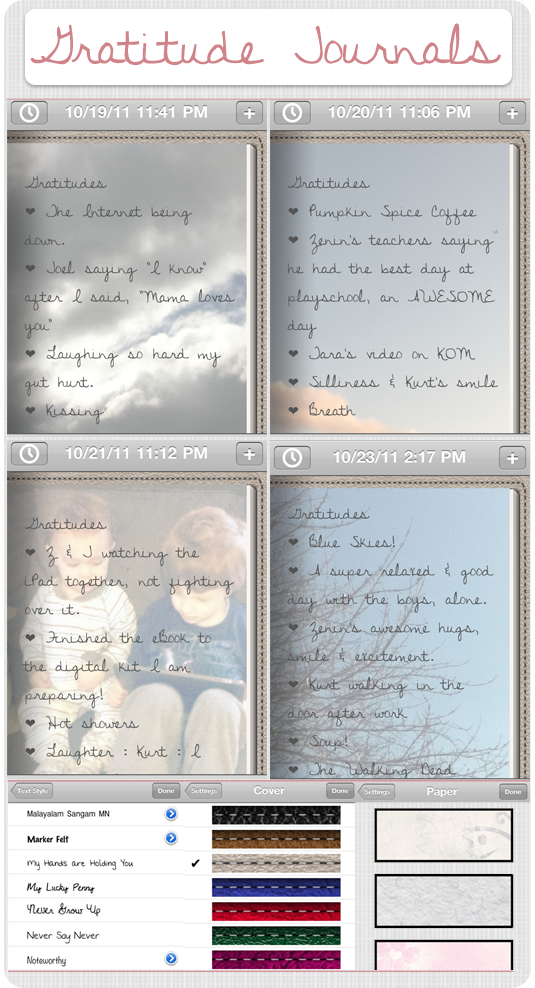 Gratitude Journals
10/19/11 11:41 PM
+
Gratitudes
❤ The Internet being
down.
❤ Joel saying "I know"
after I said, "Mama loves
you"
❤ Laughing so hard my
gut hurt.
❤ Kissing
10/20/11 11:06 PM
+
Gratitudes
❤ Pumpkin Spice Coffee
❤ Zenin's teachers saying
he had the best day at
playschool, an AWESOME
day
❤ Tara's video on KOM
❤ Silliness & Kurt's smile
❤ Breath
10/21/11 11:12 PM
+
Gratitudes
❤ Z & J watching the
iPad together, not fighting
over it.
❤ Finished the eBook to
the digital kit I am
preparing!
❤ Hot showers
❤ Laughter : Kurt : I
10/23/11 2:17 PM
+
Gratitudes
❤ Blue Skies!
❤ A super relaxed & good
day with the boys, alone.
❤ Zenin's awesome hugs,
smile & excitement.
❤ Kurt walking in the
door after work
❤ Soup!
❤ The Walking Dead
Text Style
Done
Malayalam Sangam MN
Marker Felt
My Hands are Holding You
My Lucky Penny
Never Grow Up
Never Say Never
Noteworthy
Settings
Cover
Done
✔
Settings
Paper
Done